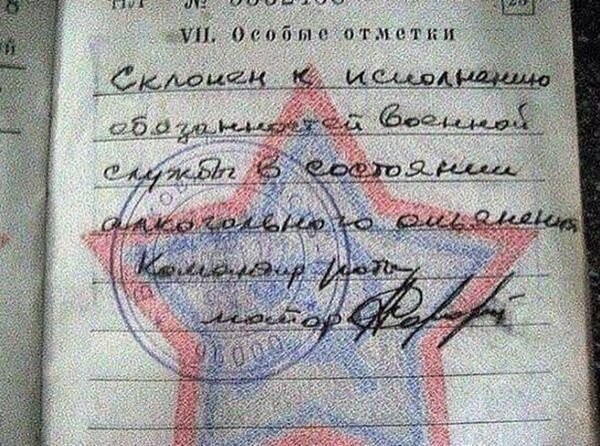 НЛ №
VII. Особые отметки
Склонен к исполнению
обязанностей военной
службы в состоянии
алкогольного опьянения
Командир роты
майор